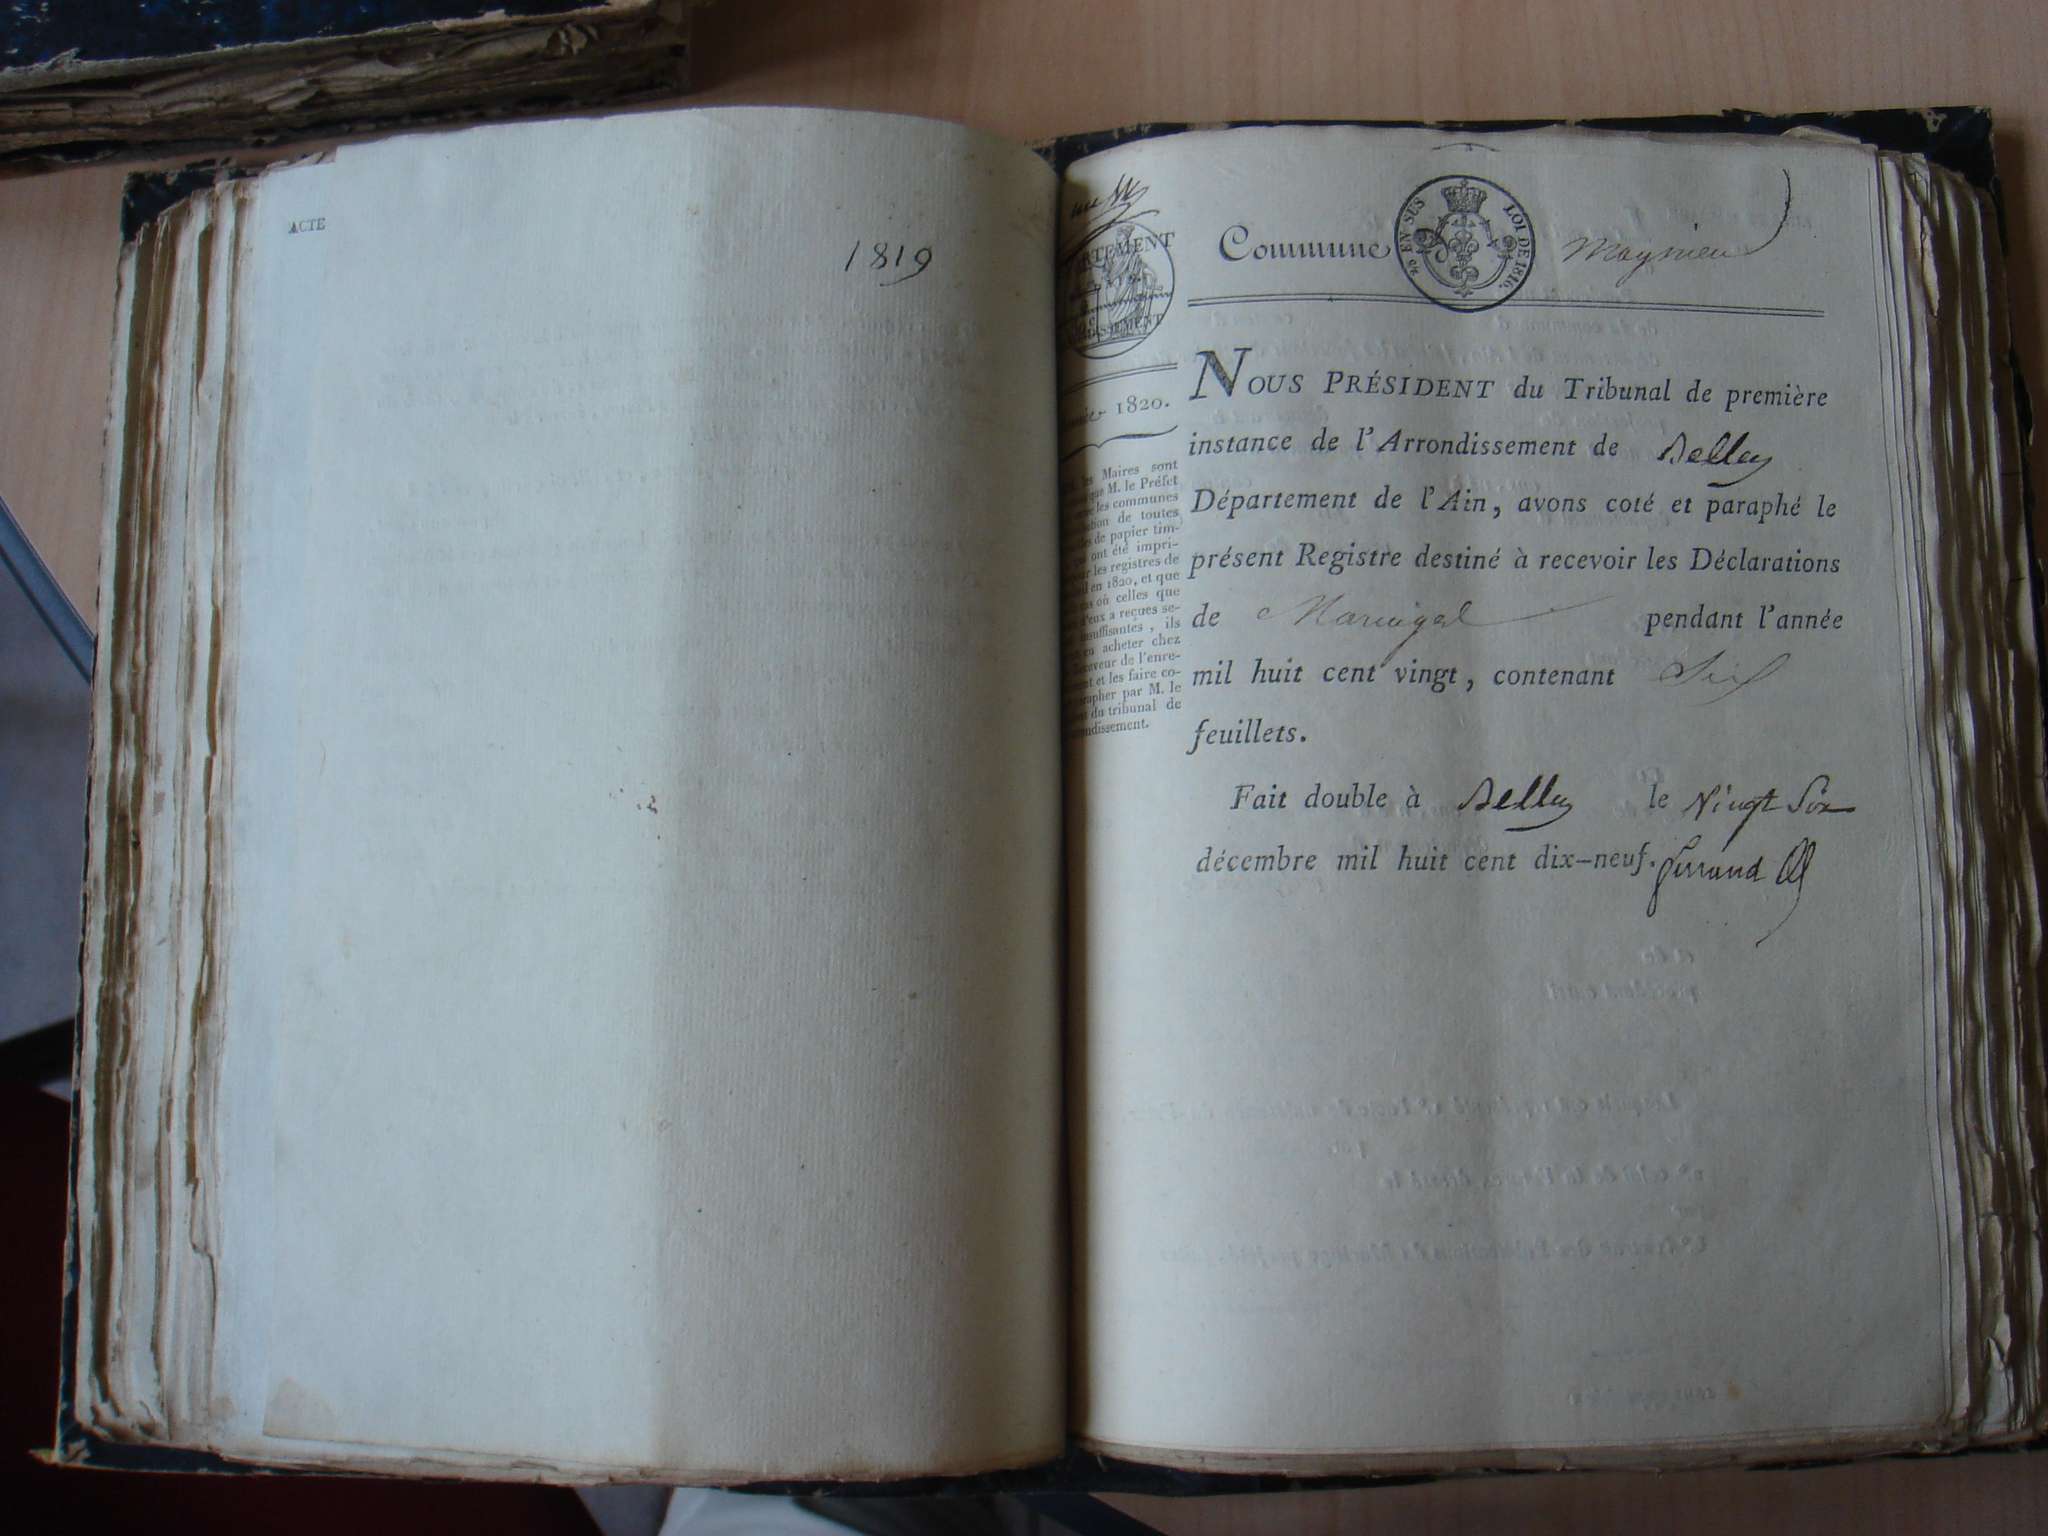 ACTE
1819
EN SUS
LOI DE 1816.
Commune Magnieu
1820.
Maires sont
que M. le Préfet
les communes
de toutes
de papier tim-
ont été impri-
les registres de
en 1820, et que
où celles que
d'eux a reçues se-
insuffisantes, ils
en acheter chez
de l'enre-
et les faire co-
par M. le
du tribunal de
NOUS PRÉSIDENT du Tribunal de première
instance de l'Arrondissement de Belley
Département de l'Ain, avons coté et paraphé le
présent Registre destiné à recevoir les Déclarations
de Mariage pendant l'année
mil huit cent vingt, contenant Six
feuillets.
Fait double à Belley le Vingt Six
décembre mil huit cent dix-neuf.